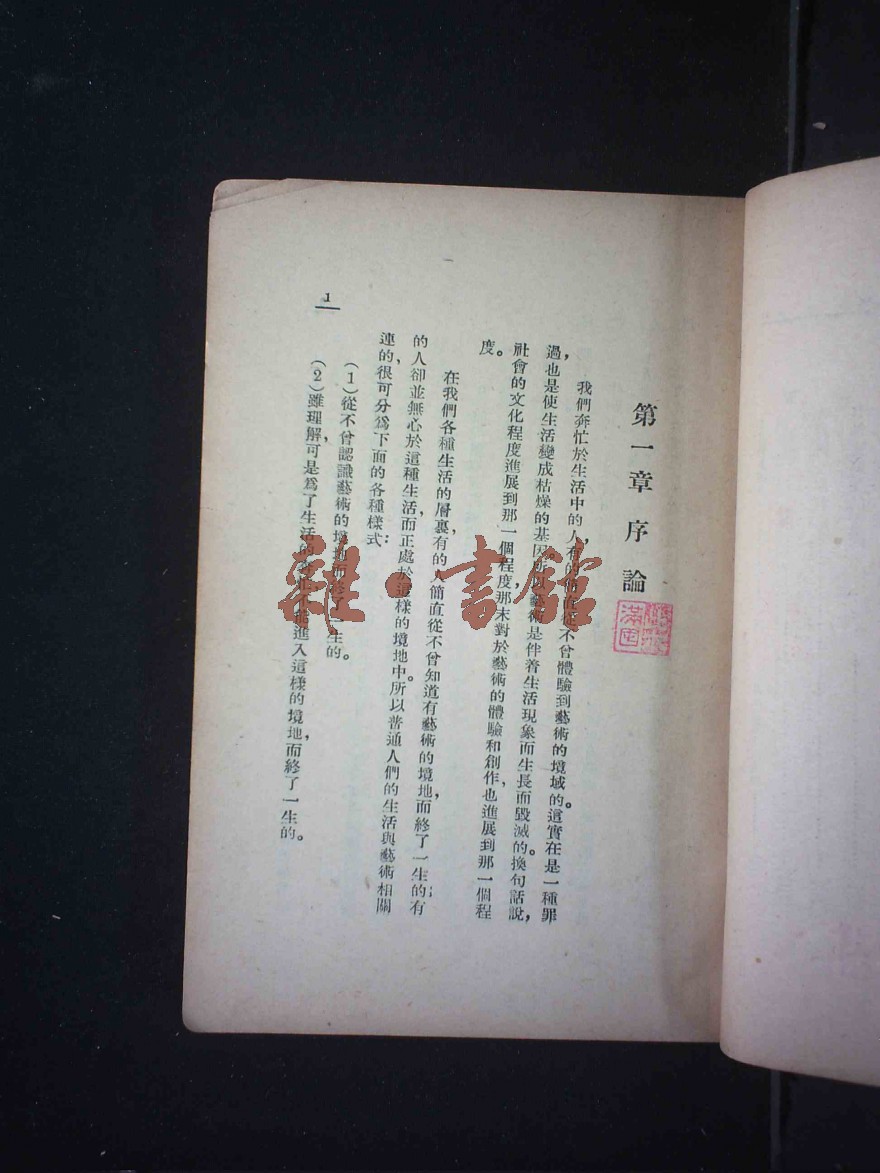 第一章 序論
我們奔忙於生活中的人，有的簡直從不曾體驗到藝術的境域的。這實在是一種罪
過，也是使生活變成枯燥的基因。所以藝術是伴着生活現象而生長而毀滅的。換句話說，
社會的文化程度進展到那一個程度，那末對於藝術的體驗和創作，也進展到那一個程
度。
在我們各種生活的層裏，有的人簡直從不曾知道有藝術的境地而終了一生的；有
的人卻並無心於這種生活，而正處於這樣的境地中。所以普通人們的生活與藝術相關
連的，很可分爲下面的各種樣式：
(1)從不曾認識藝術的境地而終了一生的。
(2)雖理解，可是爲了生活的 不能進入這樣的境地，而終了一生的。
1
雜·書館